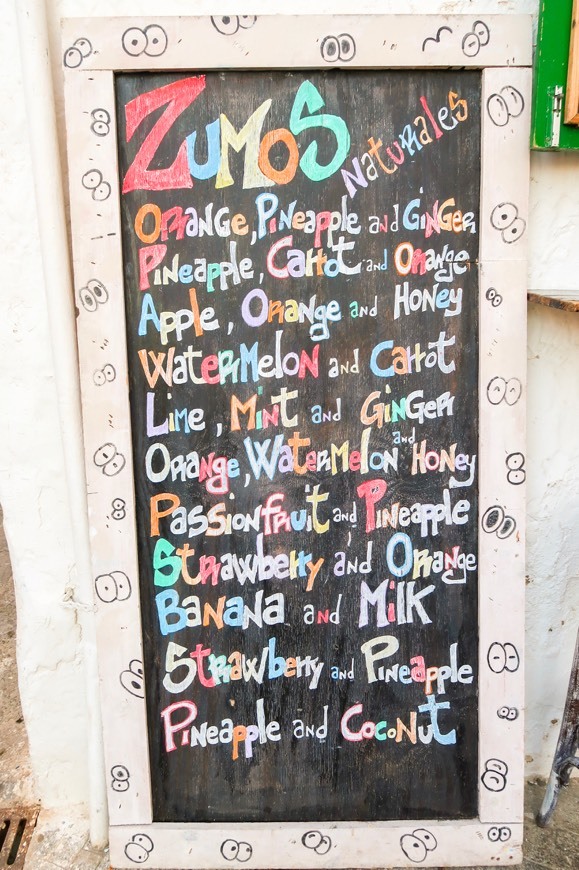 Zumos Naturales
Orange, Pineapple and Ginger
Pineapple, Carrot and Orange
Apple, Orange and Honey
Watermelon and Carrot
Lime, Mint and Ginger
Orange, Watermelon and Honey
Passionfruit and Pineapple
Strawberry and Orange
Banana and Milk
Strawberry and Pineapple
Pineapple and Coconut